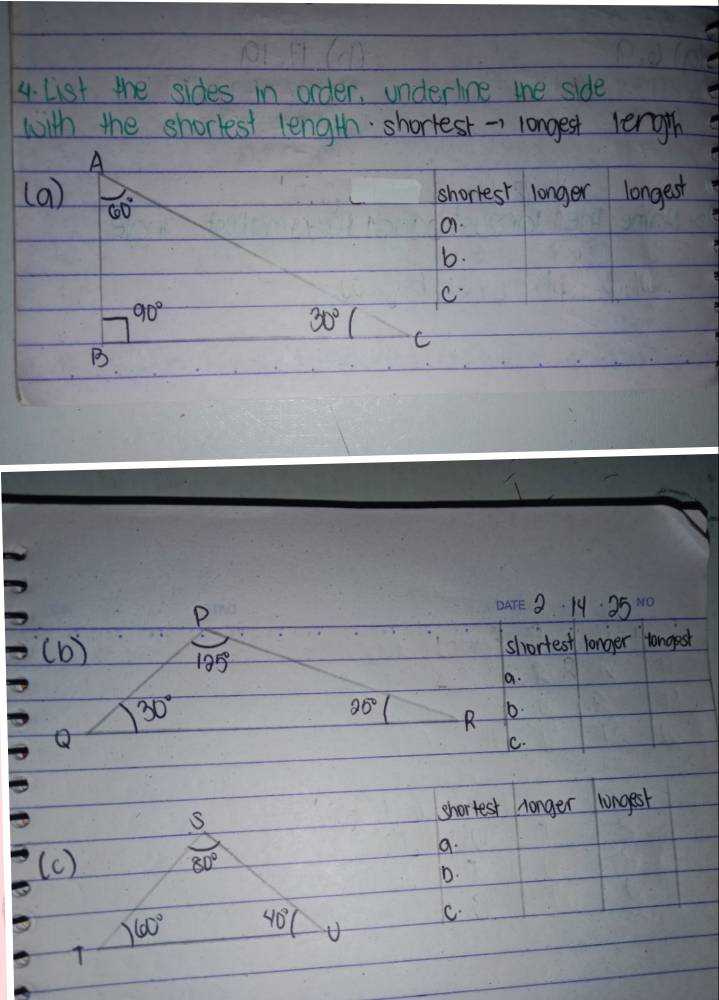 4. List the sides in order. underline the side
with the shortest length. shortest → longest length
(a)
A
60°
90°
B
30°
C
shortest longer longest
a.
b.
c.
DATE 2 . 14 . 25 NO
(b)
P
125°
30°
Q
25°
R
shortest longer longest
a.
b.
c.
(c)
S
80°
60°
T
40°
U
shortest longer longest
a.
b.
c.